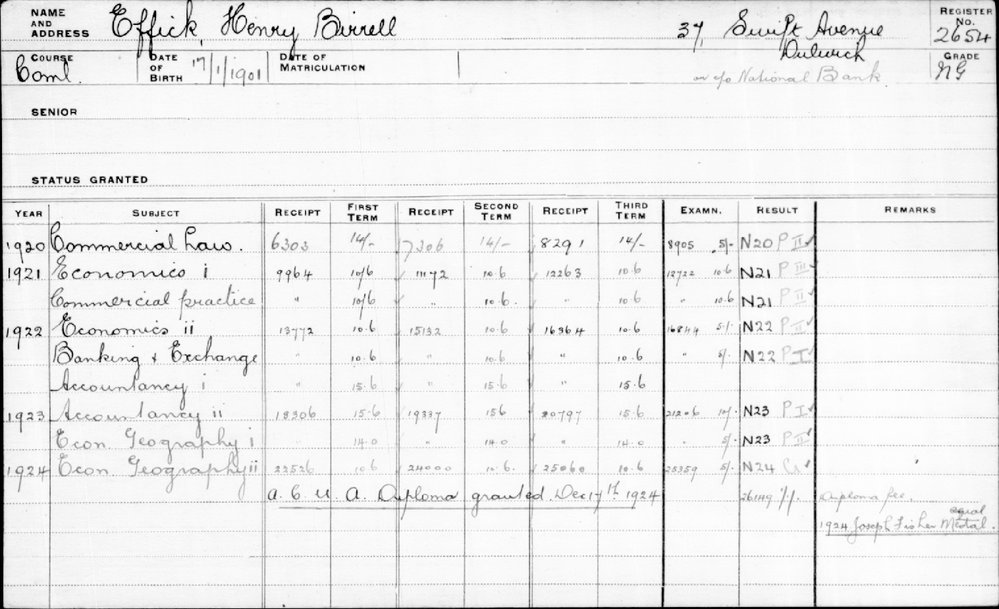 NAME AND ADDRESS Effick, Henry Birrell 37, Swift Avenue REGISTER No. 2654
Dulwich
COURSE Coml. DATE OF BIRTH 17/1/1901 DATE OF MATRICULATION or c/o National Bank GRADE NG
SENIOR
STATUS GRANTED
YEAR SUBJECT RECEIPT FIRST TERM RECEIPT SECOND TERM RECEIPT THIRD TERM EXAMN. RESULT REMARKS
1920 Commercial Law. 6303 14/- 7306 14/- 8291 14/- 8905 5/- N20 P II ✓
1921 Economics i 9964 10/6 11172 10.6 12263 10.6 12722 10.6 N21 P III ✓
Commercial practice " 10/6 " 10.6. " 10.6 " 10.6 N21 P II ✓
1922 Economics ii 13772 10.6 15132 10.6 16364 10.6 16844 5/. N22 P II ✓
Banking & Exchange " 10.6 " 10.6 " 10.6 " 5/. N22 P I ✓
Accountancy i " 15.6 " 15.6 " 15.6
1923 Accountancy ii 18306 15.6 19337 156 20797 15.6 21206 10/. N23 P I ✓
Econ. Geography i " 14.0 " 14.0 " 14.0 " 5/. N23 P II ✓
1924 Econ. Geography ii 22526 10.6 24000 10.6. 25060 10.6 25359 5/. N24 Cr ✓
A. C. U. A. Diploma granted Dec 17th 1924 26149 Diploma fee.
1924 Joseph Fisher equal Medal.